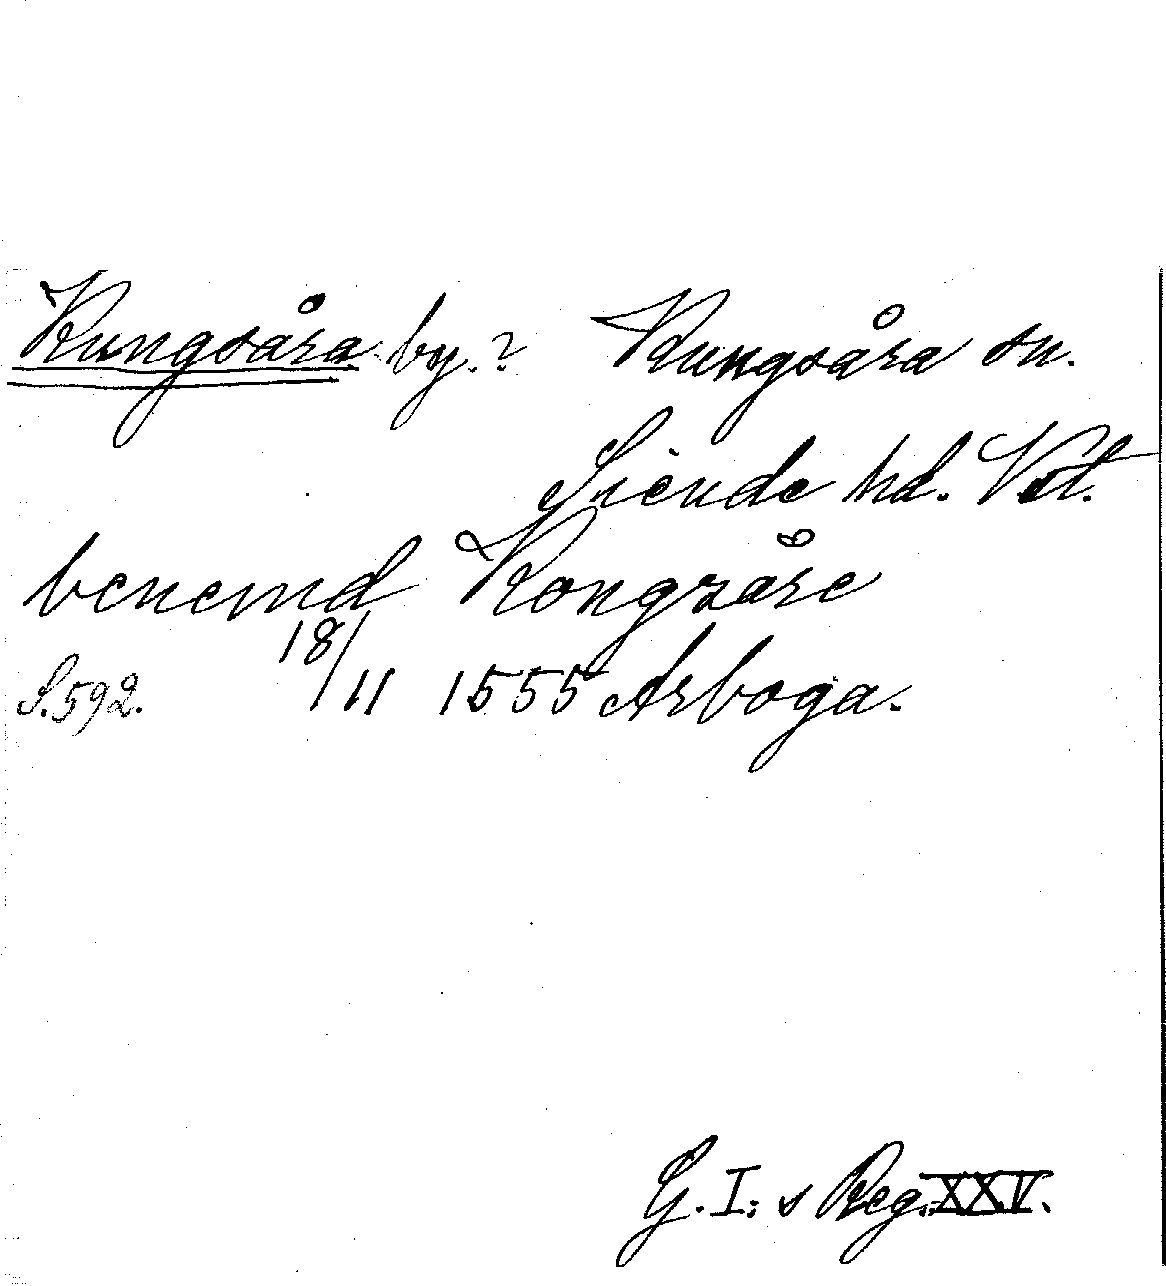 Kungsåra by.? Kungsåra sn.
Siende hd. Vstl.
benemd Kongzåre
S.592. 18/11 1555 Arboga.
G.I:s Reg. XXV.